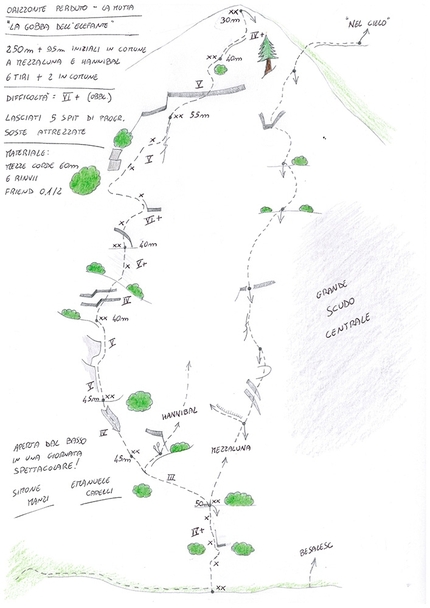 ORIZZONTE PERDUTO - LA MOTTA
"LA GOBBA DELL'ELEFANTE"
250m + 95m INIZIALI IN COMUNE
A MEZZALUNA E HANNIBAL
6 TIRI + 2 IN COMUNE
DIFFICOLTÀ = VI+ (OBBL)
LASCIATI 5 SPIT DI PROGR.
SOSTE ATTREZZATE
MATERIALE:
MEZZE CORDE 60m
6 RINVII
FRIEND 0,1/2
XX
30m
IV+
"NEL CIELO"
XX
40m
V
XX 55m
V
VI+
XX
40m
VI+
IV
XX 40m
V
V
45m XX
GRANDE
SCUDO
CENTRALE
HANNIBAL
MEZZALUNA
45m XX
III
50m XX
IV+
APERTA DAL BASSO
IN UNA GIORNATA
SPETTACOLARE!
SIMONE
MANZI
EMANUELE
CADELLI
BESALESC
XX